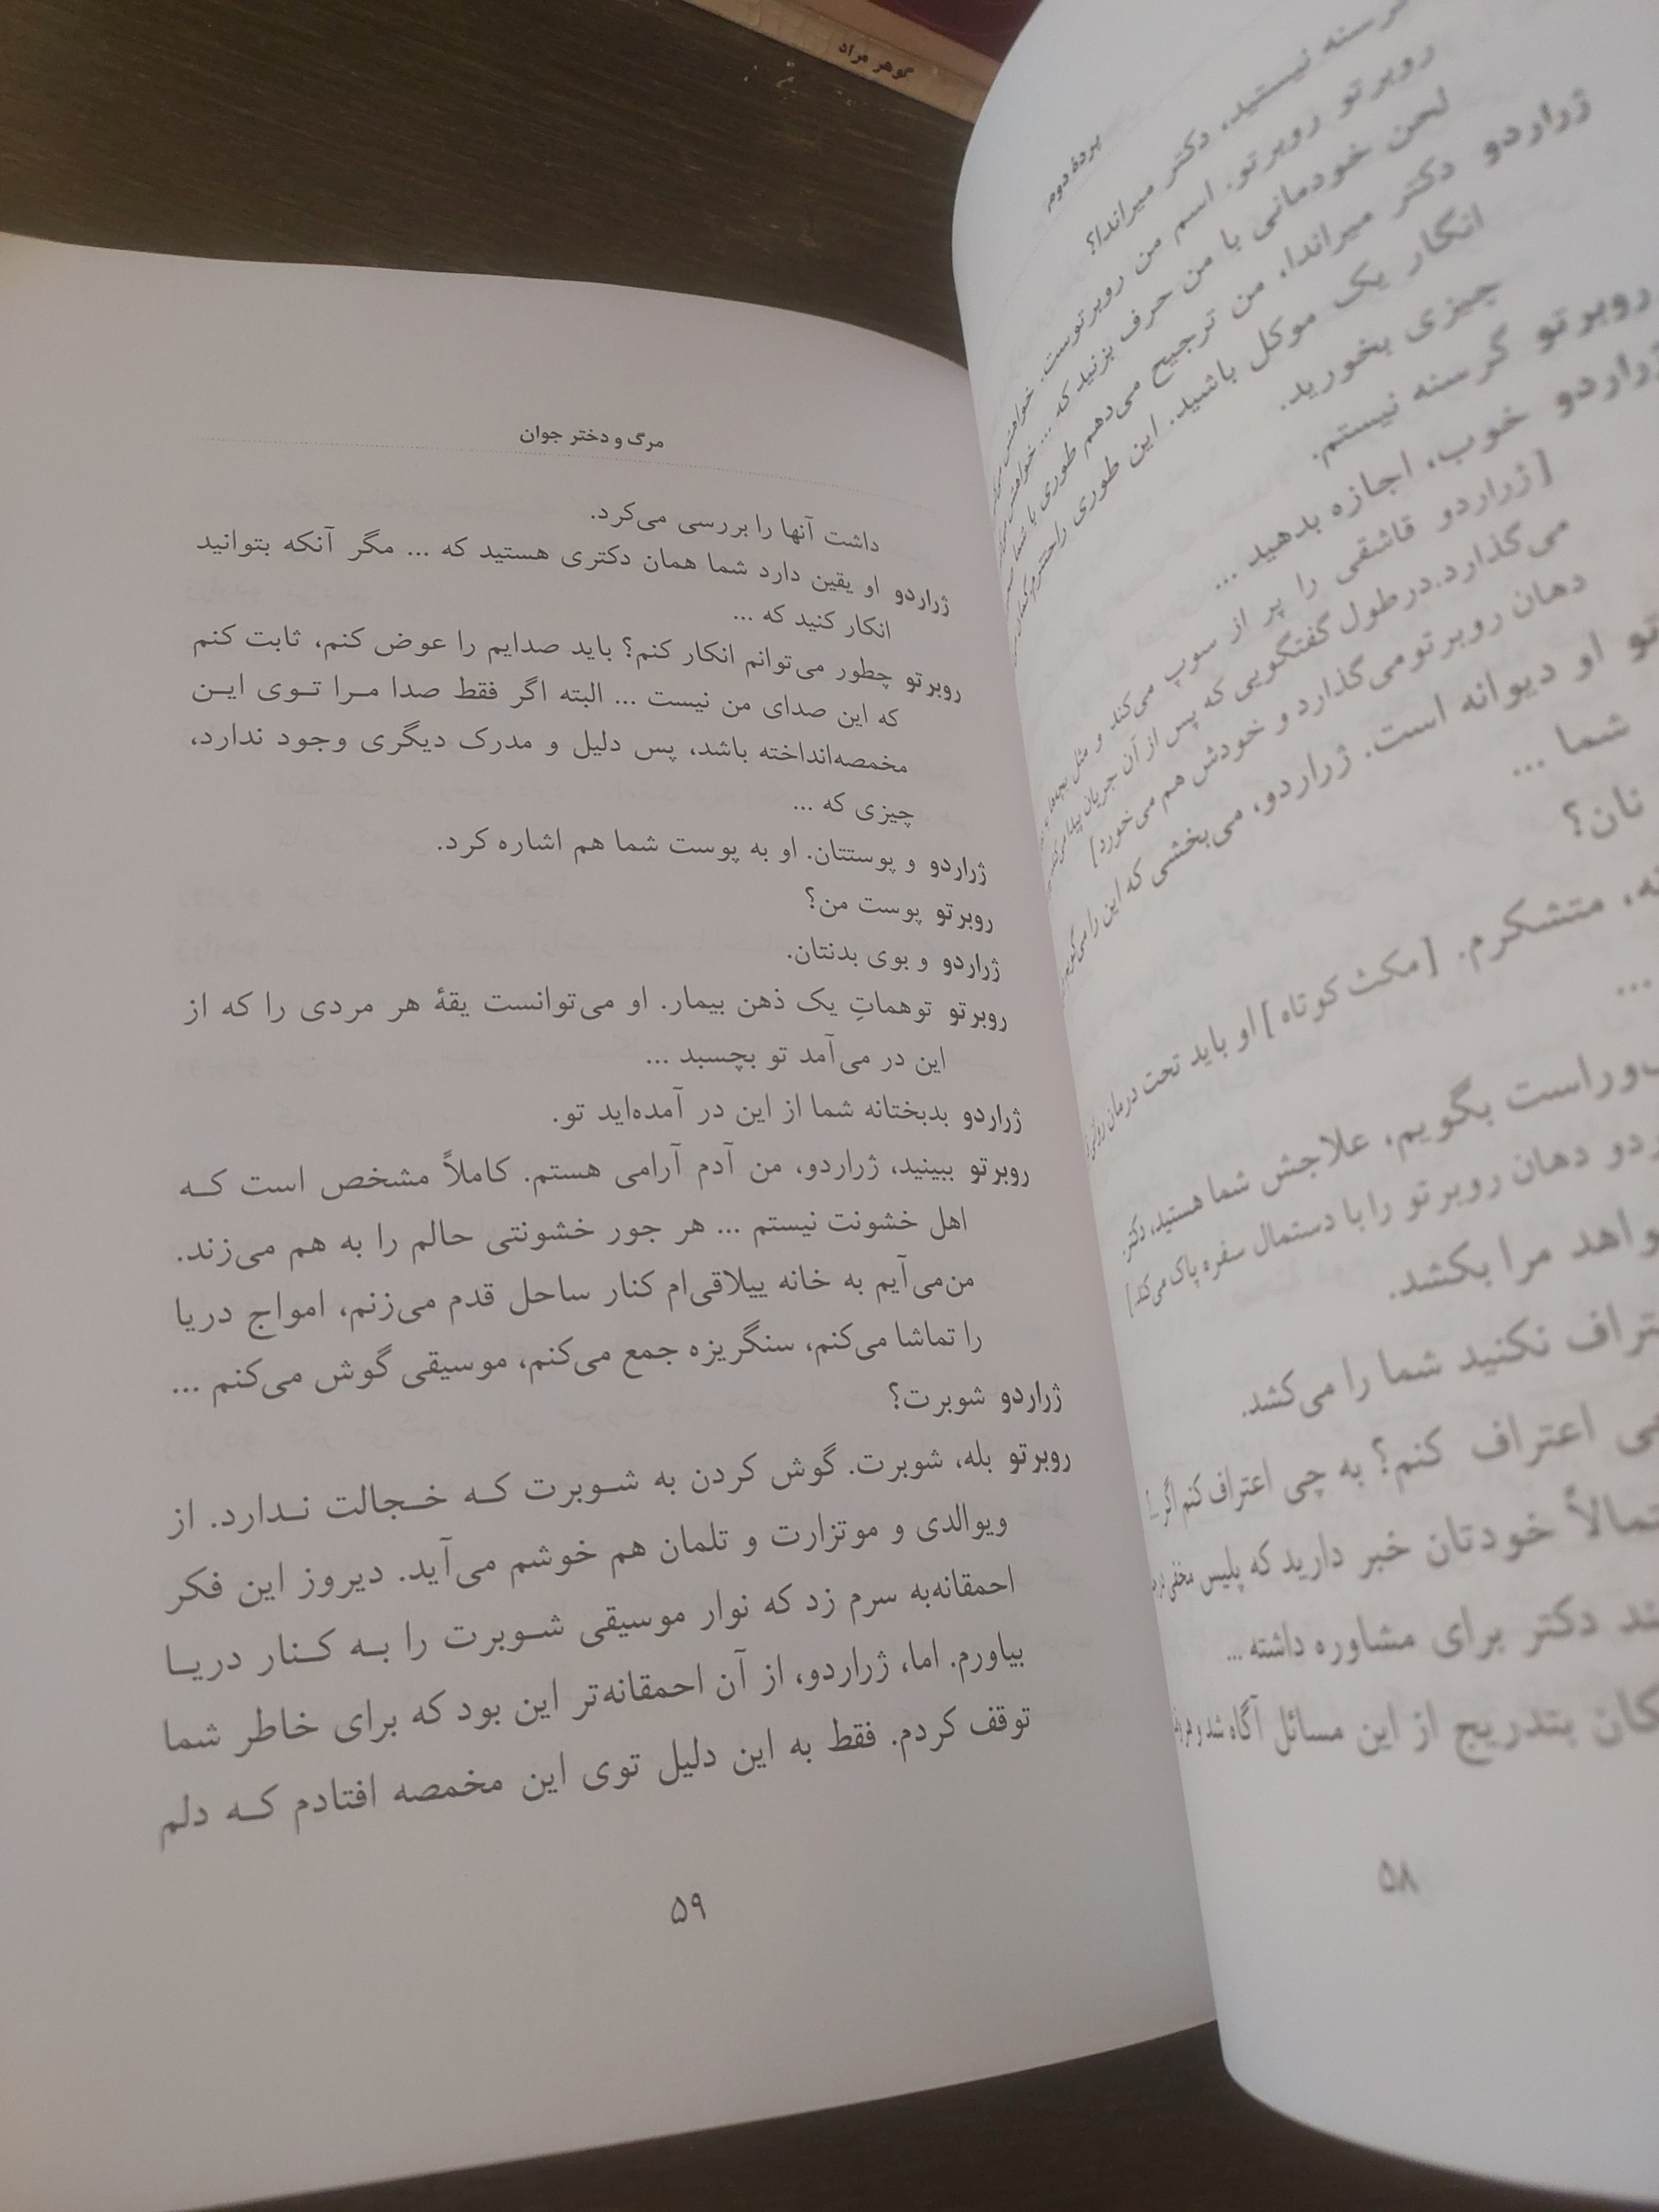 گوهر مراد
پردۀ دوم
گرسنه نیستید، دکتر میراندا؟
روبرتو روبرتو. اسم من روبرتوست. خواهش
لحن خودمانی با من حرف بزنید که ... خواهش
ژراردو دکتر میراندا، من ترجیح می‌دهم طوری با شما
انگار یک موکل باشید. این طوری راحتترم
چیزی بخورید.
روبرتو گرسنه نیستم.
ژراردو خوب، اجازه بدهید ...
[ژراردو قاشقی را پر از سوپ می‌کند و مثل بچه‌ها
می‌گذارد. در طول گفتگویی که پس از آن جریان پیدا می‌کند
دهان روبرتو می‌گذارد و خودش هم می‌خورد]
تو او دیوانه است. ژراردو، می‌بخشی که این را می‌گویم
شما ...
نان؟
نه، متشکرم. [مکث کوتاه] او باید تحت درمان
...
وراست بگویم، علاجش شما هستید، دکتر.
ردو دهان روبرتو را با دستمال سفره پاک می‌کند]
واهد مرا بکشد.
تراف نکنید شما را می‌کشد.
چی اعتراف کنم؟ به چی اعتراف کنم اگر ...
تمالاً خودتان خبر دارید که پلیس مخفی
ند دکتر برای مشاوره داشته ...
کان بتدریج از این مسائل آگاه شد و
۵۸
مرگ و دختر جوان
داشت آنها را بررسی می‌کرد.
ژراردو او یقین دارد شما همان دکتری هستید که ... مگر آنکه بتوانید
انکار کنید که ...
روبرتو چطور می‌توانم انکار کنم؟ باید صدایم را عوض کنم، ثابت کنم
که این صدای من نیست ... البته اگر فقط صدا مرا توی این
مخمصه‌انداخته باشد، پس دلیل و مدرک دیگری وجود ندارد،
چیزی که ...
ژراردو و پوستتان. او به پوست شما هم اشاره کرد.
روبرتو پوست من؟
ژراردو و بوی بدنتان.
روبرتو توهماتِ یک ذهن بیمار. او می‌توانست یقۀ هر مردی را که از
این در می‌آمد تو بچسبد ...
ژراردو بدبختانه شما از این در آمده‌اید تو.
روبرتو ببینید، ژراردو، من آدم آرامی هستم. کاملاً مشخص است که
اهل خشونت نیستم ... هر جور خشونتی حالم را به هم می‌زند.
من‌می‌آیم به خانه ییلاقی‌ام کنار ساحل قدم می‌زنم، امواج دریا
را تماشا می‌کنم، سنگریزه جمع می‌کنم، موسیقی گوش می‌کنم ...
ژراردو شوبرت؟
روبرتو بله، شوبرت. گوش کردن به شوبرت که خجالت ندارد. از
ویوالدی و موتزارت و تلمان هم خوشم می‌آید. دیروز این فکر
احمقانه‌به سرم زد که نوار موسیقی شوبرت را به کنار دریا
بیاورم. اما، ژراردو، از آن احمقانه‌تر این بود که برای خاطر شما
توقف کردم. فقط به این دلیل توی این مخمصه افتادم که دلم
۵۹